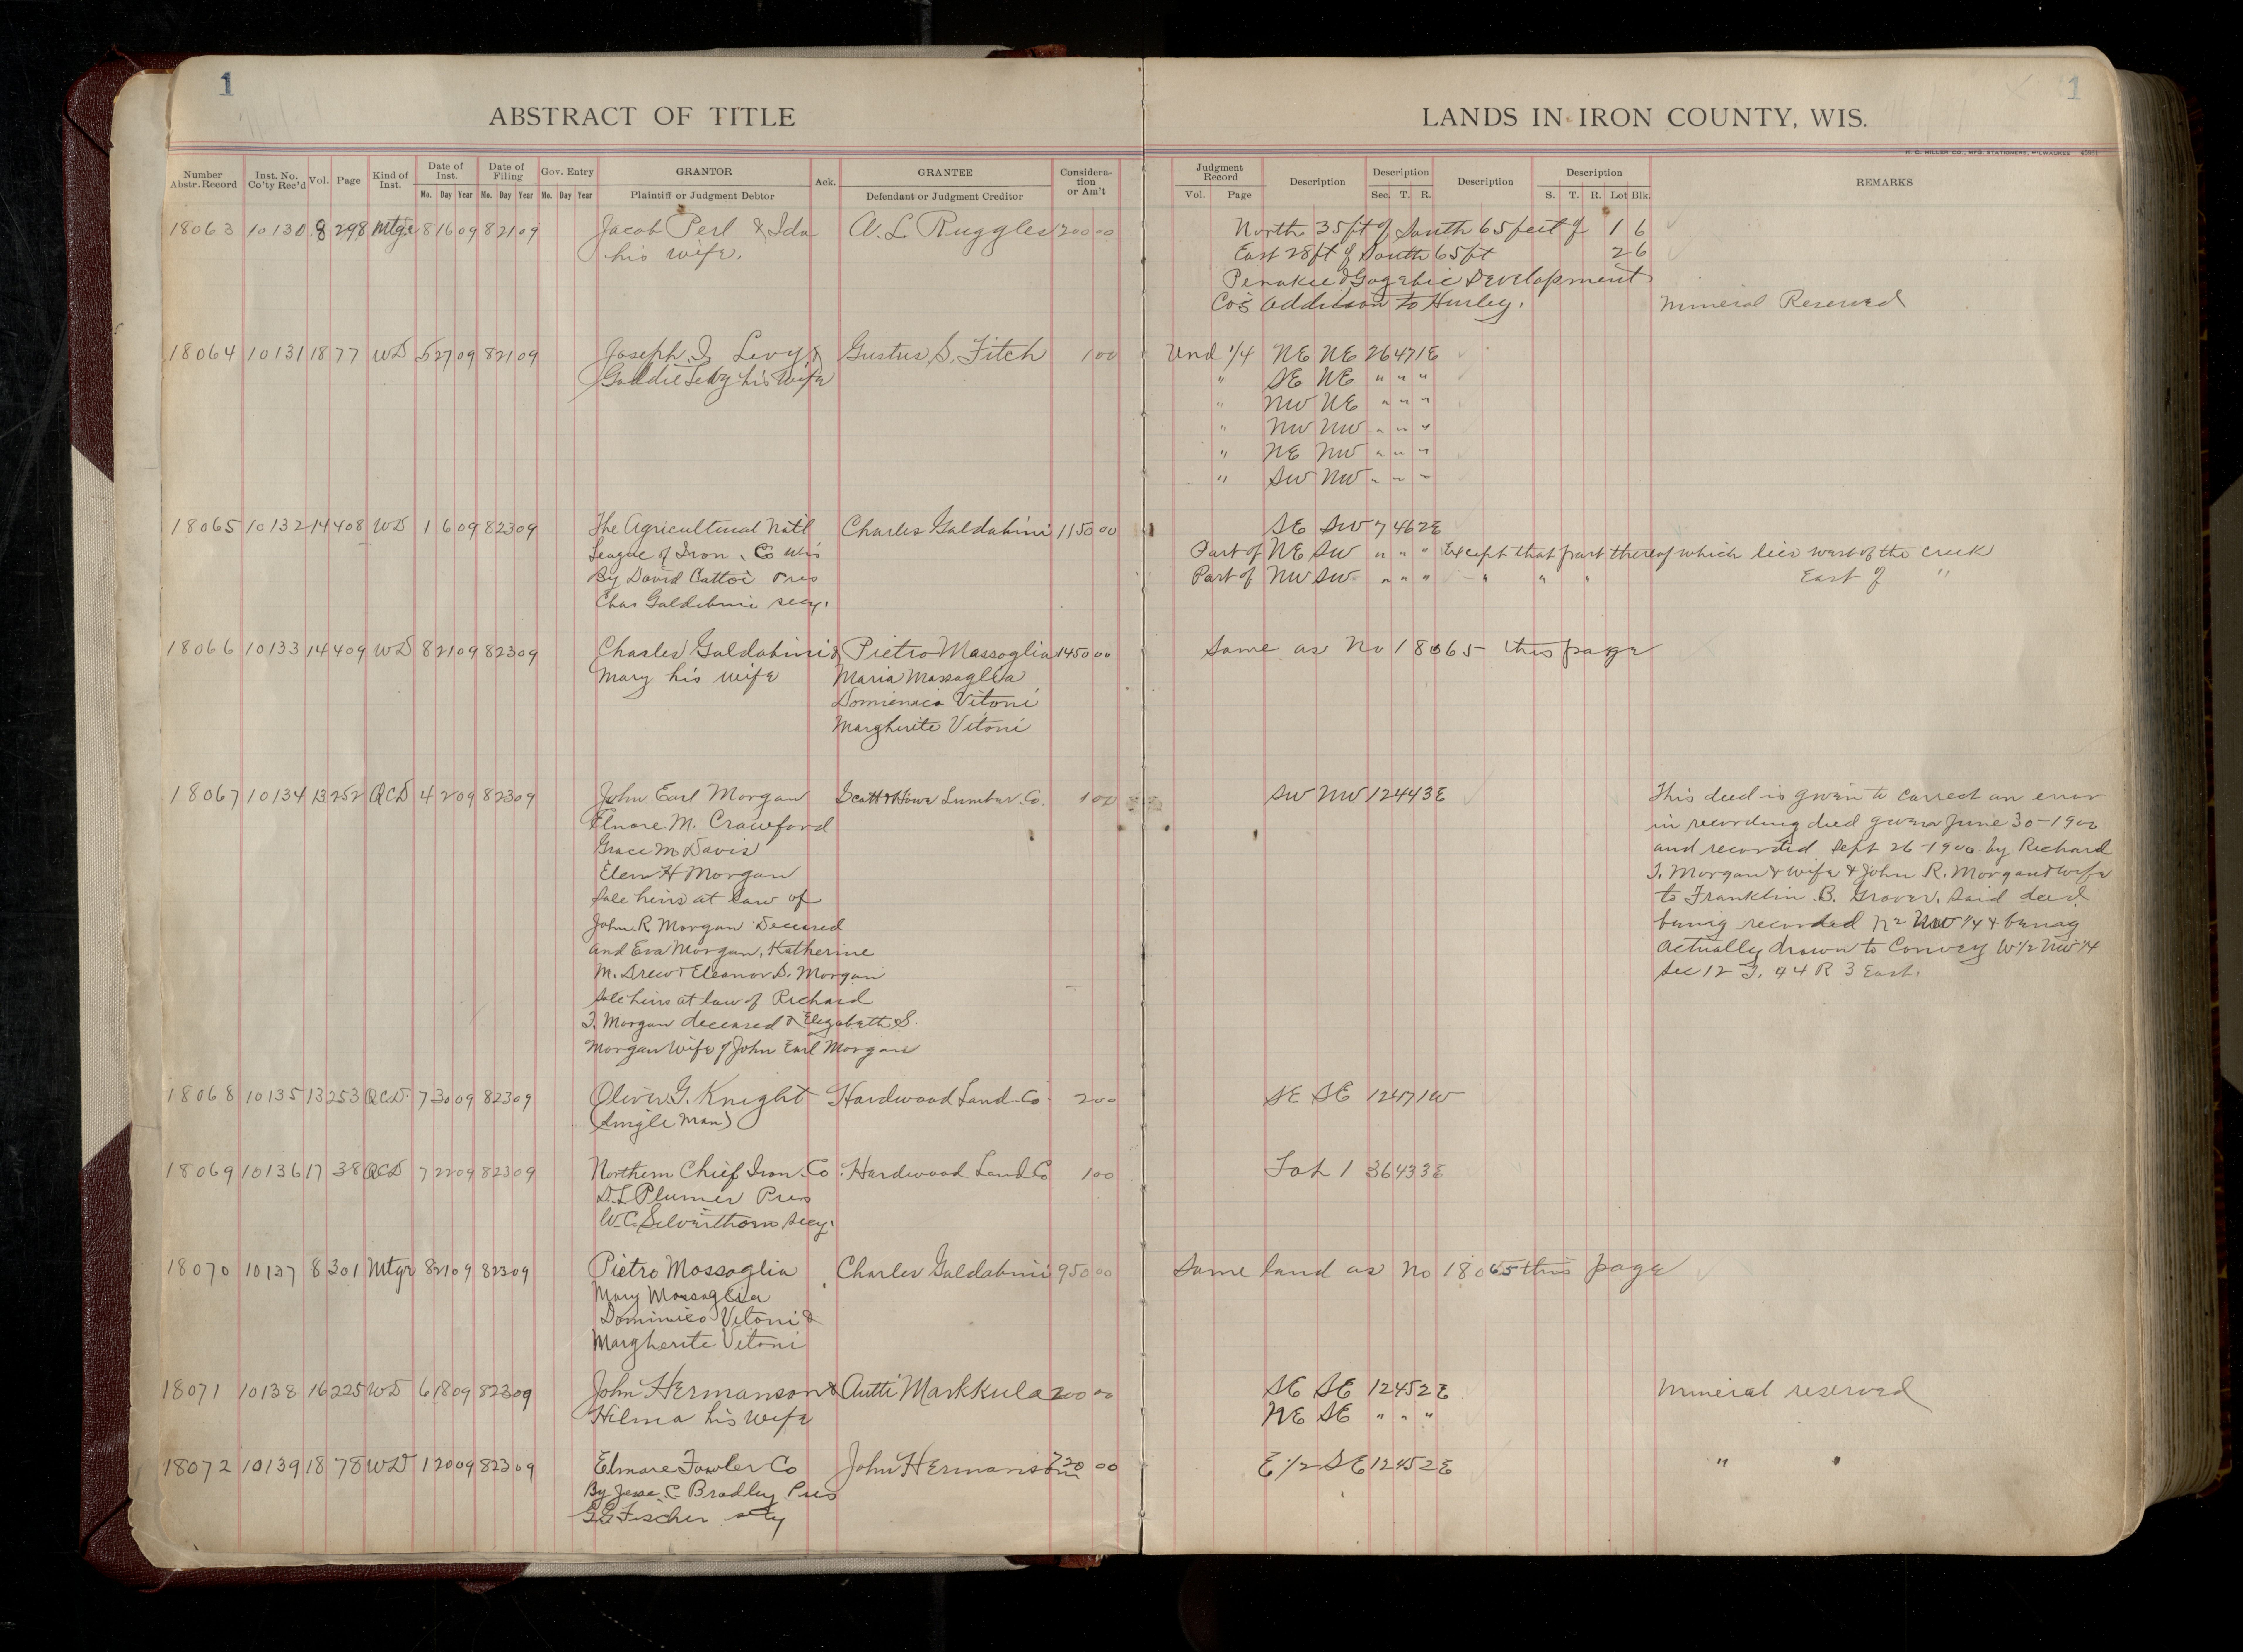 1
1
ABSTRACT OF TITLE
LANDS IN IRON COUNTY, WIS.
H. C. MILLER CO., MFG. STATIONERS, MILWAUKEE
Number Abstr. Record | Inst. No. Co'ty Rec'd | Vol. | Page | Kind of Inst. | Date of Inst. Mo. Day Year | Date of Filing Mo. Day Year | Gov. Entry Mo. Day Year | GRANTOR Plaintiff or Judgment Debtor | Ack. | GRANTEE Defendant or Judgment Creditor | Consideration or Am't | Judgment Record Vol. Page | Description | Description Sec. T. R. | Description | Description S. T. R. Lot Blk. | REMARKS
18063 10130 8 298 Mtge 8 16 09 8 21 09 Jacob Perl & Ida A. L. Ruggles 200 00 North 35 ft of South 65 feet of 1 6
his wife. East 28 ft of South 65 ft 2 6
Penokee & Gogebic Development
Co's Addition to Hurley. Mineral Reserved
18064 10131 18 77 WD 5 27 09 8 21 09 Joseph I. Levy & Gustus S. Fitch 1 00 Und 1/4 NE NE 26 47 1E
Goldie Levy his wife " SE NE " " "
" NW NE " " "
" NW NW " " "
" NE NW " " "
" SW NW " " "
18065 10132 14 408 WD 1 6 09 8 23 09 The Agricultural Nat'l Charles Galdabini 1150 00 SE SW 7 46 2E
League of Iron Co Wis Part of NE SW " " " Except that part thereof which lies west of the creek
By David Cattoi Pres Part of NW SW " " " " " " East of "
Chas Galdabini secy.
18066 10133 14 409 WD 8 21 09 8 23 09 Charles Galdabini & Pietro Massoglia 1450 00 Same as No 18065 this page
Mary his wife Maria Massoglia
Domienico Vitoni
Margherite Vitoni
18067 10134 13 252 QCD 4 2 09 8 23 09 John Earl Morgan Scott & Howe Lumber Co. 1 00 SW NW 12 44 3E This deed is given to correct an error
Elnore M. Crawford in recording deed given June 30-1900
Grace M Davis and recorded Sept 26-1900 by Richard
Elen H Morgan T. Morgan & wife & John R. Morgan & wife
Sole heirs at law of to Franklin B. Grover. Said deed
John R. Morgan Deceased being recorded N2 NW 1/4 & being
and Eva Morgan, Katherine actually drawn to Convey W 1/2 NW 1/4
M. Drew & Eleanor D. Morgan Sec 12 T. 44 R 3 East.
Sole heirs at law of Richard
T. Morgan deceased & Elizabeth S.
Morgan wife of John Earl Morgan
18068 10135 13 253 QCD 7 30 09 8 23 09 Oliver G. Knight Hardwood Land Co 2 00 SE SE 12 47 1W
(Single Man)
18069 10136 17 38 QCD 7 22 09 8 23 09 Northern Chief Iron Co Hardwood Land Co 1 00 Lot 1 36 43 3E
D. L Plumer Pres
W. C. Silverthorn secy.
18070 10137 8 301 Mtge 8 21 09 8 23 09 Pietro Massoglia Charles Galdabini 950 00 Same land as No 18065 this page
Mary Massoglia
Dominico Vitoni &
Margherite Vitoni
18071 10138 16 225 WD 6 18 09 8 23 09 John Hermanson & Antti Markkula 200 00 SE SE 12 45 2E Mineral reserved
Hilma his wife NE SE " " "
18072 10139 18 78 WD 1 20 09 8 23 09 Elmore Fowler Co John Hermanson 720 00 E 1/2 SE 12 45 2E " "
By Jesse C. Bradley Pres
G. G. Fischer secty